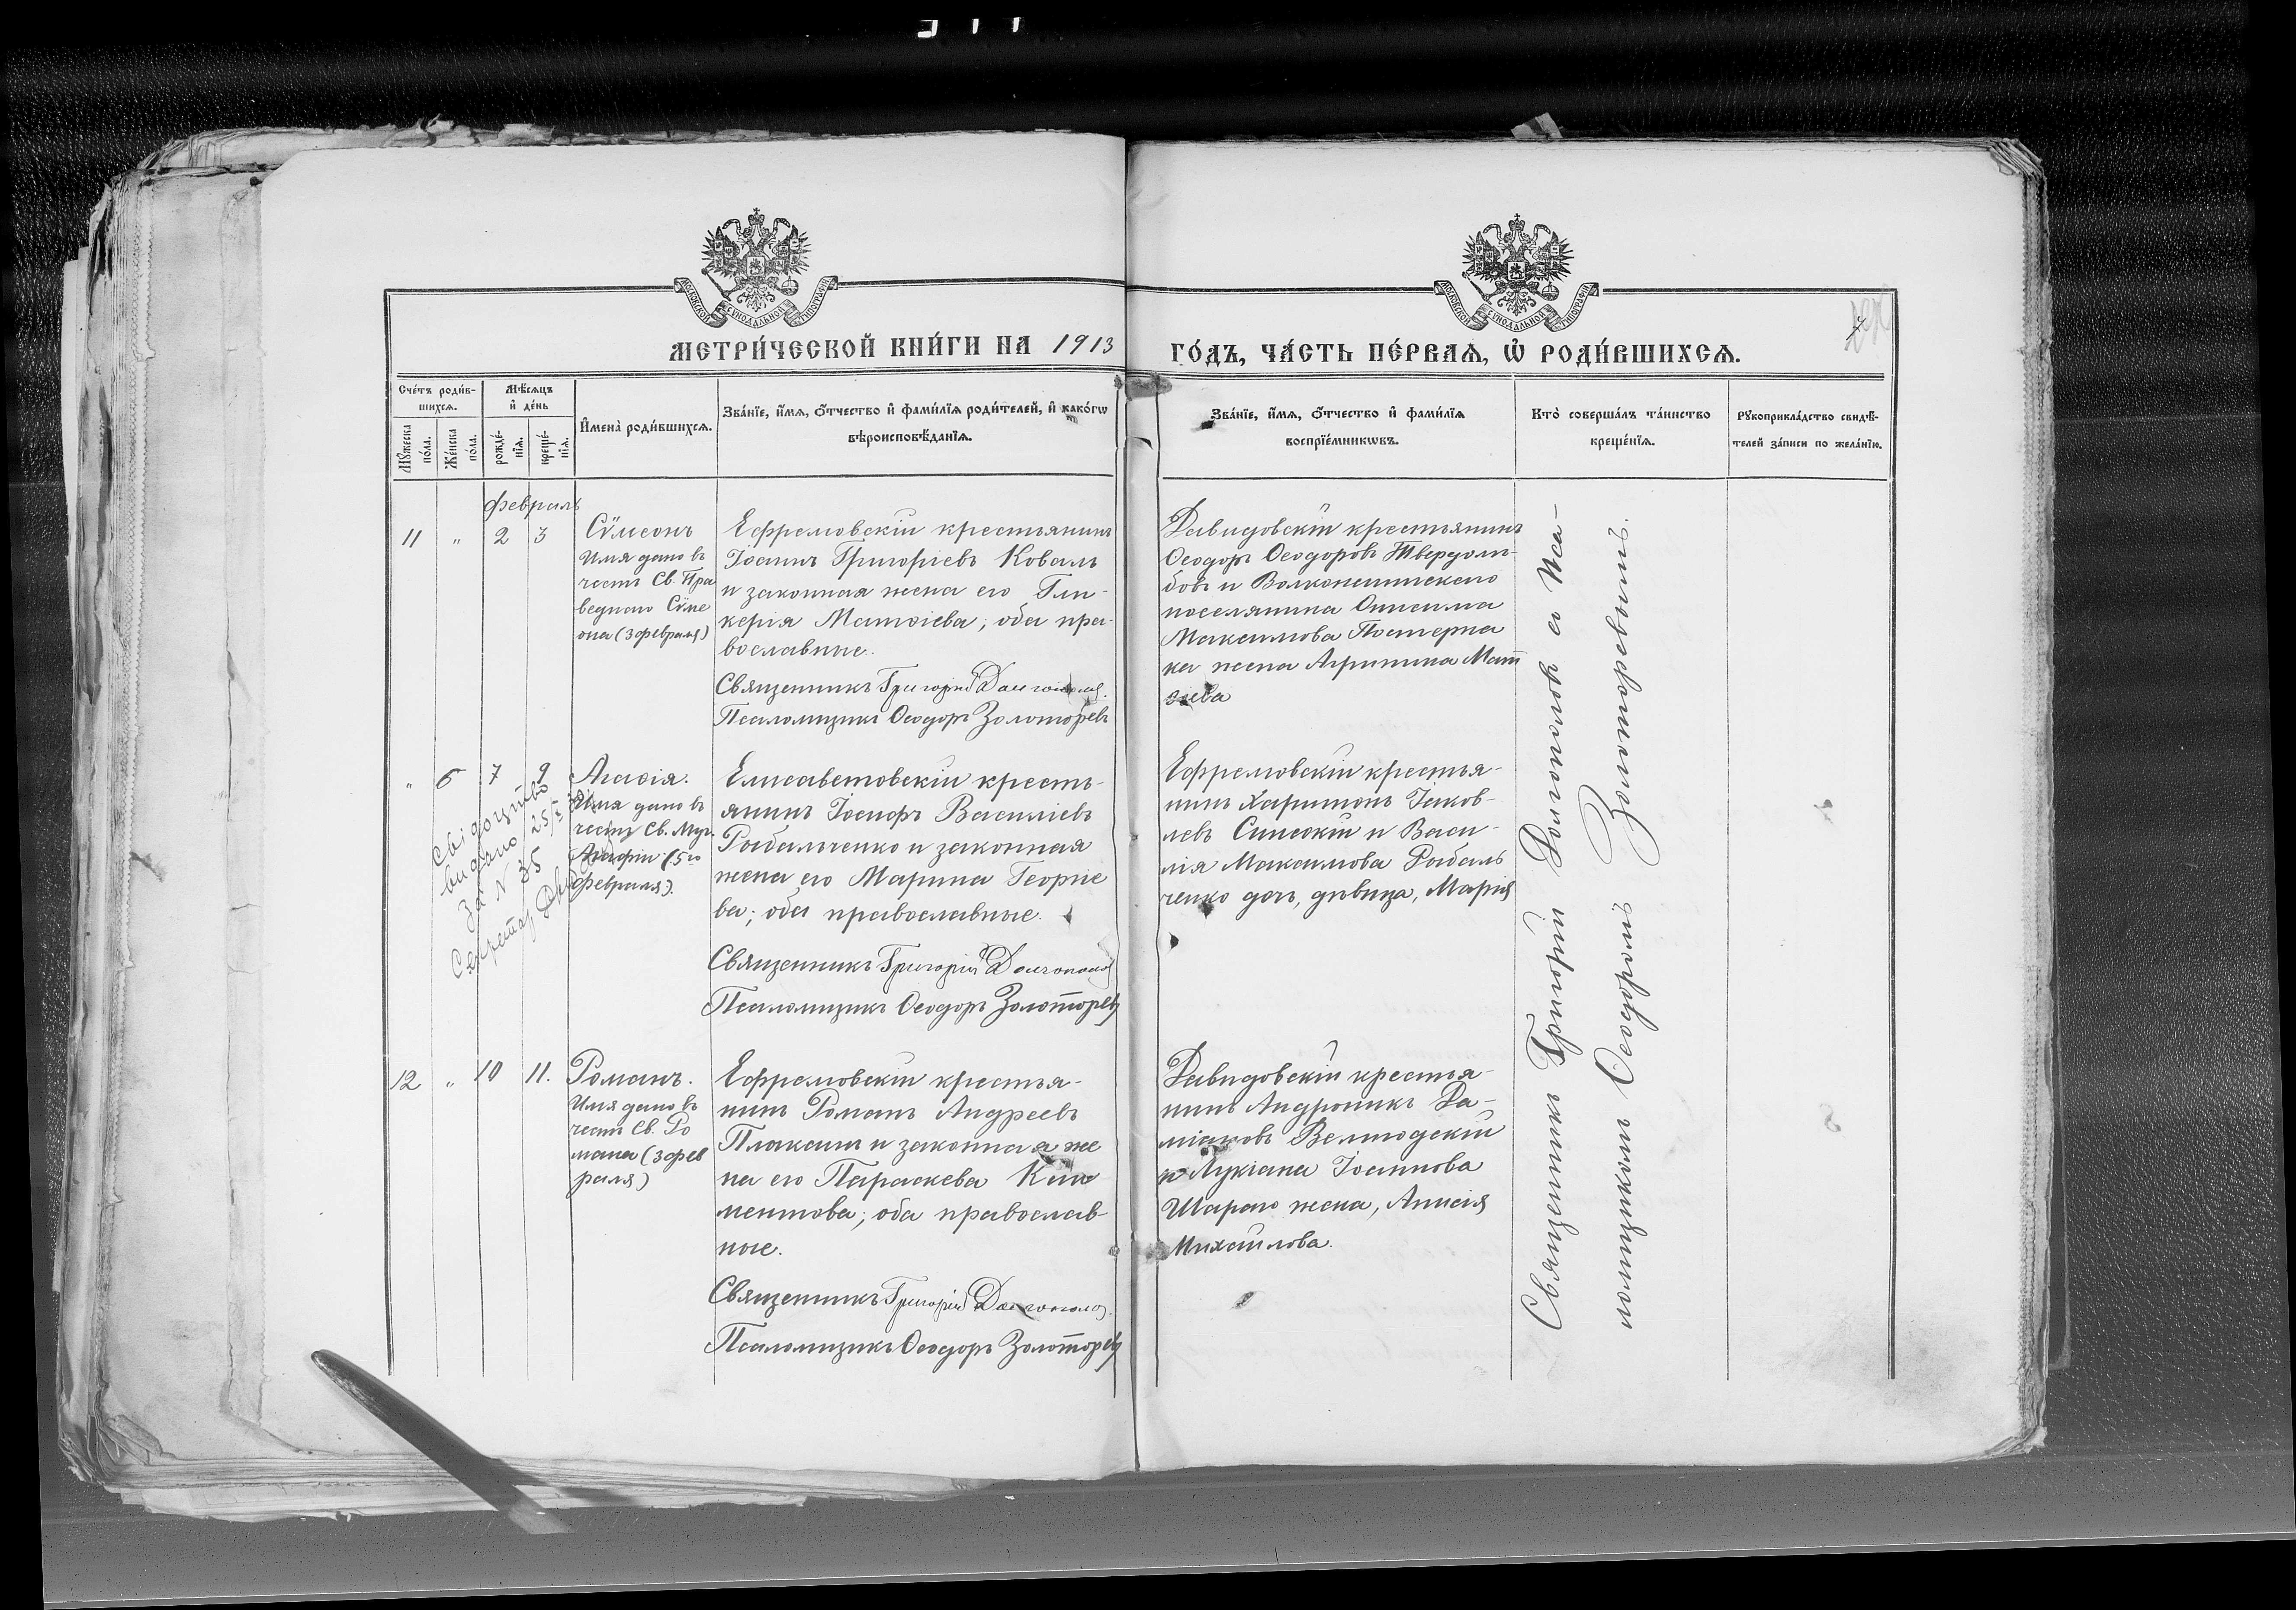 МЕТРИ́ЧЕСКОЙ КНИ́ГИ НА 1913 ГО́ДЪ, ЧА́СТЬ ПЕ́РВАЯ, Ѡ РОДИ́ВШИХСЯ.
Сче́тъ роди́в-
шихся.
Мѣ́сяцъ
и де́нь
Му́жеска
по́ла.
Же́нска
по́ла.
рожде́-
нїя.
креще́-
нїя.
Имена̀ роди́вшихся.
Зва́нїе, и́мя, о́тчество и фами́лїя роди́телей, и како́гѡ
вѣроисповѣ́данїя.
Зва́нїе, и́мя, о́тчество и фами́лїя
воспрїе́мникѡвъ.
Кто̀ соверша́лъ та́инство
креще́нїя.
Рукоприкла́дство свидѣ́-
телей за́писи по жела́нїю.
февраль
11 " 2 3
Сѷмеонъ
Имя дано въ
честь Св. Пра
веднаго Сѷме
она (3 февраля)
Ефремовскій крестьянинъ
Іоаннъ Григоріевъ Коваль
и законная жена его Гли-
керія Матѳіева; оба пра-
вославные.
Священникъ Григорій Долгополовъ.
Псаломщикъ Ѳеодоръ Золоторевъ
Давидовскій крестьянинъ
Ѳеодоръ Ѳеодоровъ Твердохлѣ-
бовъ и
поселянина Онисима
Максимова Пастерна
ка жена Агрипина Мат
ѳіева
" 6 7 9
Агаѳія.
Имя дано въ
честь Св. Муч.
Агафіи (5го
февраля).
Свідоцтво
видано 25/І
за № 35
Секретар
Елисаветовскій кресть-
янинъ Іосифъ Василіевъ
Рыбальченко и законная
жена его Марина Георгіе
ва; оба православные.
Священникъ Григорій Долгополовъ
Псаломщикъ Ѳеодоръ Золоторевъ
Ефремовскій крестья-
нинъ Харитонъ Іаков-
левъ и Васи-
лія Максимова Рыбаль
ченко дочь, дѣвица, Марія
12 " 10 11.
Романъ.
Имя дано въ
честь Св. Ро
мана (3 фев
раля)
Ефремовскій крестья-
нинъ Романъ Андреевъ
Плаксинъ и законная же
на его Параскева Кли
ментова; оба православ-
ные.
Священникъ Григорій Долгополовъ.
Псаломщикъ Ѳеодоръ Золоторевъ
Давидовскій крестья-
нинъ Андроникъ Да-
міановъ Велигодскій
и Лукіана Іоаннова
Шараго жена, Анисія
Михайлова.
Священникъ Григорій Долгополовъ а Пса-
ломщикомъ Ѳеодоромъ Золоторевымъ.